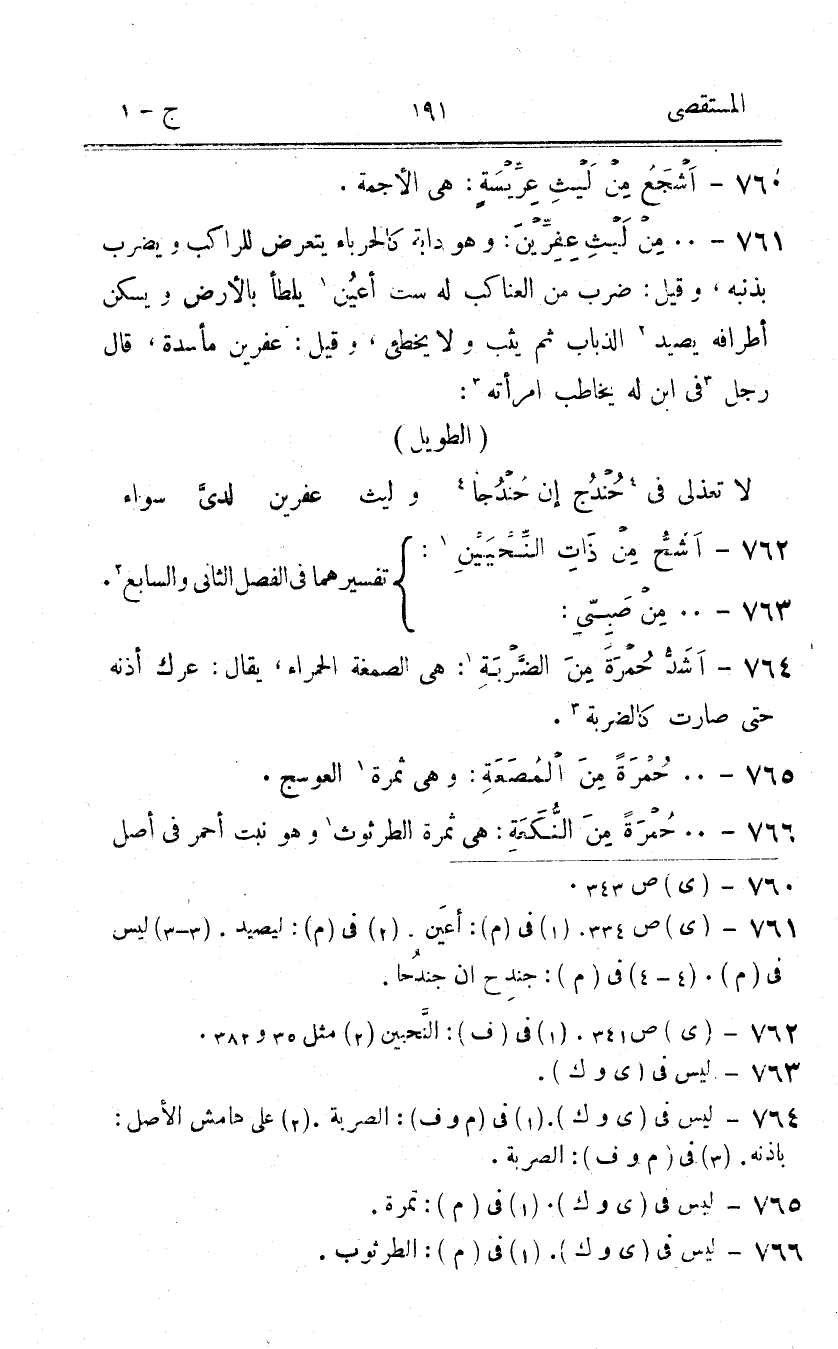 المستقصى ١٩١ ج - ١
٧٦٠ - اَشْجَعُ مِنْ لَيْثِ عِرِّيْسَةٍ : هى الأجمة .
٧٦١ - ٠٠ مِنْ لَيْثِ عِفِرِّيْنَ : و هو دابة كالحرباء يتعرض للراكب و يضرب
بذنبه ، و قيل : ضرب من العناكب له ست أعيُن ١ يلطأ بالأرض و يسكن
أطرافه يصيد ٢ الذباب ثم يثب و لا يخطئ ، و قيل : عفرين مأسدة ، قال
رجل ٣ فى ابن له يخاطب امرأته ٣ :
( الطويل )
لا تعذلى فى ٤ حُنْدُج إن حُنْدُجا ٤ و ليث عفرين لدىَّ سواء
٧٦٢ - اَشَحُّ مِنْ ذَاتِ النِّحْيَيْنِ ١ :
٧٦٣ - ٠٠ مِنْ صَبِىٍّ : } تفسيرهما فى الفصل الثانى والسابع ٢ .
٧٦٤ - اَشَدُّ حُمْرَةً مِنَ الضَّرْبَةِ ١ : هى الصمغة الحمراء ، يقال : عرك أذنه
حتى صارت كالضربة ٣ .
٧٦٥ - ٠٠ حُمْرَةً مِنَ الْمُصَعَةِ : و هى ثمرة ١ العوسج .
٧٦٦ - ٠٠ حُمْرَةً مِنَ النُّكَعَةِ : هى ثمرة الطرثوث ١ و هو نبت أحمر فى أصل
٧٦٠ - ( ى ) ص ٣٤٣ .
٧٦١ - ( ى ) ص ٣٣٤ . (١) فى (م) : أعَين . (٢) فى (م) : ليصيد . (٣-٣) ليس
فى ( م ) . (٤ - ٤) فى ( م ) : جندِح ان جندُحا .
٧٦٢ - ( ى ) ص ٣٤١ . (١) فى ( ف ) : النَّحيين (٢) مثل ٣٥ و ٣٨٢ .
٧٦٣ - ليس فى ( ى و ك ) .
٧٦٤ - ليس فى ( ى و ك ) . (١) فى (م و ف) : الصربة . (٢) على هامش الأصل :
باذنه . (٣) فى ( م و ف ) : الصربة .
٧٦٥ - ليس فى ( ى و ك ) . (١) فى ( م ) : تمرة .
٧٦٦ - ليس فى ( ى و ك ) . (١) فى ( م ) : الطرثوب .